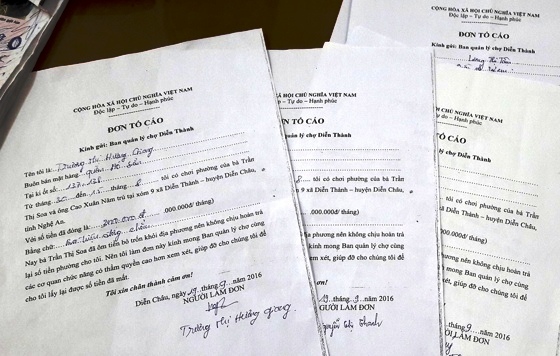 CỘNG HÒA XÃ HỘI CHỦ NGHĨA VIỆT NAM
Độc lập – Tự do – Hạnh phúc
ĐƠN TỐ CÁO
Kính gửi: Ban quản lý chợ Diễn Thành
Tên tôi là: Trương Thị Hương Giang
Buôn bán mặt hàng
Tại ki ốt số: 127-128
Từ tháng 30 đến 15 tháng 8 tôi có chơi phường của bà Trần
Thị Soa và ông Cao Xuân Năm trú tại xóm 9 xã Diễn Thành – huyện Diễn Châu,
tỉnh Nghệ An.
Với số tiền đã đóng là: .000.000đ/ tháng)
Bằng chữ:
Nay bà Trần Thị Soa đã ôm tiền bỏ trốn khỏi địa phương nên không chịu hoàn trả
lại số tiền phường cho tôi. Nên tôi làm đơn này kính mong Ban quản lý chợ cùng
các cơ quan chức năng có thẩm quyền cao hơn xem xét, giúp đỡ cho chúng tôi để
cho tôi lấy lại được số tiền đã mất.
Tôi xin chân thành cảm ơn!
Diễn Châu, ngày 19 tháng 9 năm 2016
NGƯỜI LÀM ĐƠN
Trương Thị Hương Giang
CỘNG HÒA XÃ HỘI CHỦ NGHĨA VIỆT NAM
Độc lập – Tự do – Hạnh phúc
ĐƠN TỐ CÁO
Kính gửi: Ban quản lý chợ Diễn Thành
8 tôi có chơi phường của bà Trần
9 xã Diễn Thành – huyện Diễn Châu,
.000.000đ/ tháng)
phương nên không chịu hoàn trả
kính mong Ban quản lý chợ cùng
xem xét, giúp đỡ cho chúng tôi để
19 tháng 9 năm 2016
NGƯỜI LÀM ĐƠN
Nguyễn Thị Thanh
CỘNG HÒA XÃ HỘI CHỦ NGHĨA VIỆT NAM
Độc lập – Tự do – Hạnh phúc
ĐƠN TỐ CÁO
Kính gửi: Ban quản lý chợ Diễn Thành
NGHĨA VIỆT NAM
Hạnh phúc
CÁO
chợ Diễn Thành
tôi có chơi phường của bà Trần
xã Diễn Thành – huyện Diễn Châu,
.000.000đ/ tháng)
phương nên không chịu hoàn trả
mong Ban quản lý chợ cùng
xét, giúp đỡ cho chúng tôi để
tháng 9 năm 2016
NGƯỜI LÀM ĐƠN